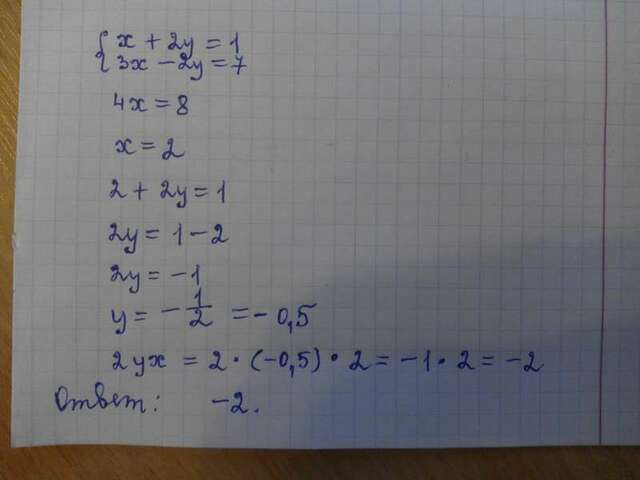 { x + 2y = 1
3x - 2y = 7
4x = 8
x = 2
2 + 2y = 1
2y = 1 - 2
2y = -1
y = -1/2 = -0,5
2yx = 2 · (-0,5) · 2 = -1 · 2 = -2
Ответ: -2.